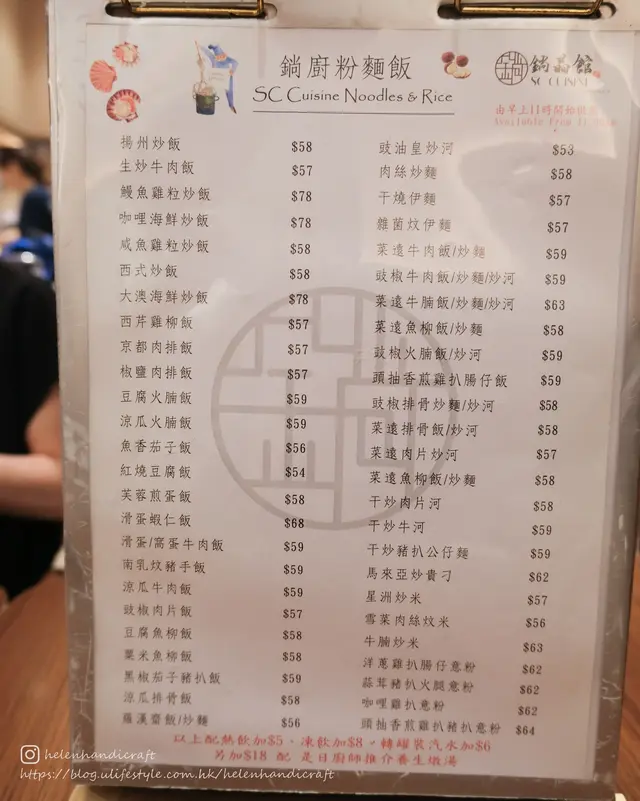 鍋廚粉麵飯
SC Cuisine Noodles & Rice
SC CUISINE
由早上11時開始供應
Available from 11
揚州炒飯 $58
生炒牛肉飯 $57
鰻魚雞粒炒飯 $78
咖哩海鮮炒飯 $78
咸魚雞粒炒飯 $58
西式炒飯 $58
大澳海鮮炒飯 $78
西芹雞柳飯 $57
京都肉排飯 $57
椒鹽肉排飯 $57
豆腐火腩飯 $59
涼瓜火腩飯 $59
魚香茄子飯 $56
紅燒豆腐飯 $54
芙蓉煎蛋飯 $58
滑蛋蝦仁飯 $68
滑蛋/窩蛋牛肉飯 $59
南乳炆豬手飯 $59
涼瓜牛肉飯 $59
豉椒肉片飯 $57
豆腐魚柳飯 $58
粟米魚柳飯 $58
黑椒茄子豬扒飯 $59
涼瓜排骨飯 $58
羅漢齋飯/炒麵 $56
豉油皇炒河 $53
肉絲炒麵 $58
干燒伊麵 $57
雜菌炆伊麵 $57
菜遠牛肉飯/炒麵 $59
豉椒牛肉飯/炒麵/炒河 $59
菜遠牛腩飯/炒麵/炒河 $63
菜遠魚柳飯/炒麵 $58
豉椒火腩飯/炒河 $59
頭抽香煎雞扒腸仔飯 $59
豉椒排骨炒麵/炒河 $58
菜遠排骨飯/炒河 $58
菜遠肉片炒河 $57
菜遠魚柳飯/炒麵 $58
干炒肉片河 $58
干炒牛河 $59
干炒豬扒公仔麵 $59
馬來亞炒貴刁 $62
星洲炒米 $57
雪菜肉絲炆米 $56
牛腩炒米 $63
洋蔥雞扒腸仔意粉 $62
蒜茸豬扒火腿意粉 $62
咖哩雞扒意粉 $62
頭抽香煎雞扒豬扒意粉 $64
以上配熱飲加$5、凍飲加$8，轉罐裝汽水加$6
另加$18 配 是日廚師推介養生燉湯
helenhandicraft
https://blog.ulifestyle.com.hk/helenhandicraft